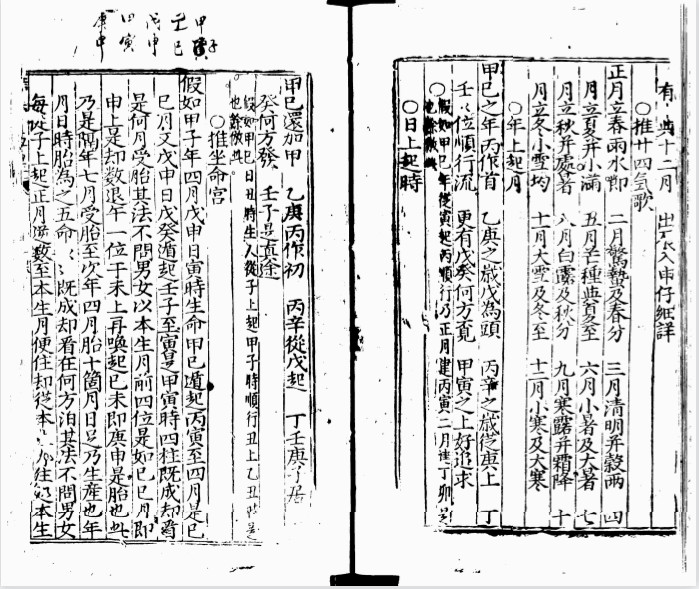 有 典十二月 出 入串仔細詳
○推廿四氣歌
正月立春雨水即 二月驚蟄及春分 三月清明并穀雨 四
月立夏并小滿 五月芒種與夏至 六月小暑及大暑 七
月立秋并處暑 八月白露及秋分 九月寒露并霜降 十
月立冬小雪均 十一月大雪及冬至 十二月小寒及大寒
○年上起月
甲巳之年丙作首 乙庚之歲戊為頭 丙辛之歲從庚上 丁
壬 位順行流 更有戊癸何方覓 甲寅之上好追求
○假如甲巳年從寅起丙順行乃正月建丙寅二月 丁卯是
也餘倣此
○日上起時
甲巳還加甲 乙庚丙作初 丙辛從戊起 丁壬庚子居
癸何方發 壬子是真途
假如甲巳日丑時生人從子上起甲子時順行丑上乙丑時是
也餘倣此
○推坐命宮
假如甲子年四月戊申日寅時生命甲巳遁起丙寅至四月是巳
巳月又戊申日戊癸遁起壬子至寅是甲寅時四柱既成却看
是何月受胎其法不問男女以本生月前四位是如巳巳月即
申上是却數退午一位于未上再喚起巳未即庚申是胎也此
乃是隔年七月受胎至次年四月胎十箇月日足乃生產也年
月日時胎為之五命 既成却看在何方泊其法不問男女
每從子上起正月逆數至本生月便住却從本 本生
甲子
甲寅
壬巳
戊申
日寅
庚申